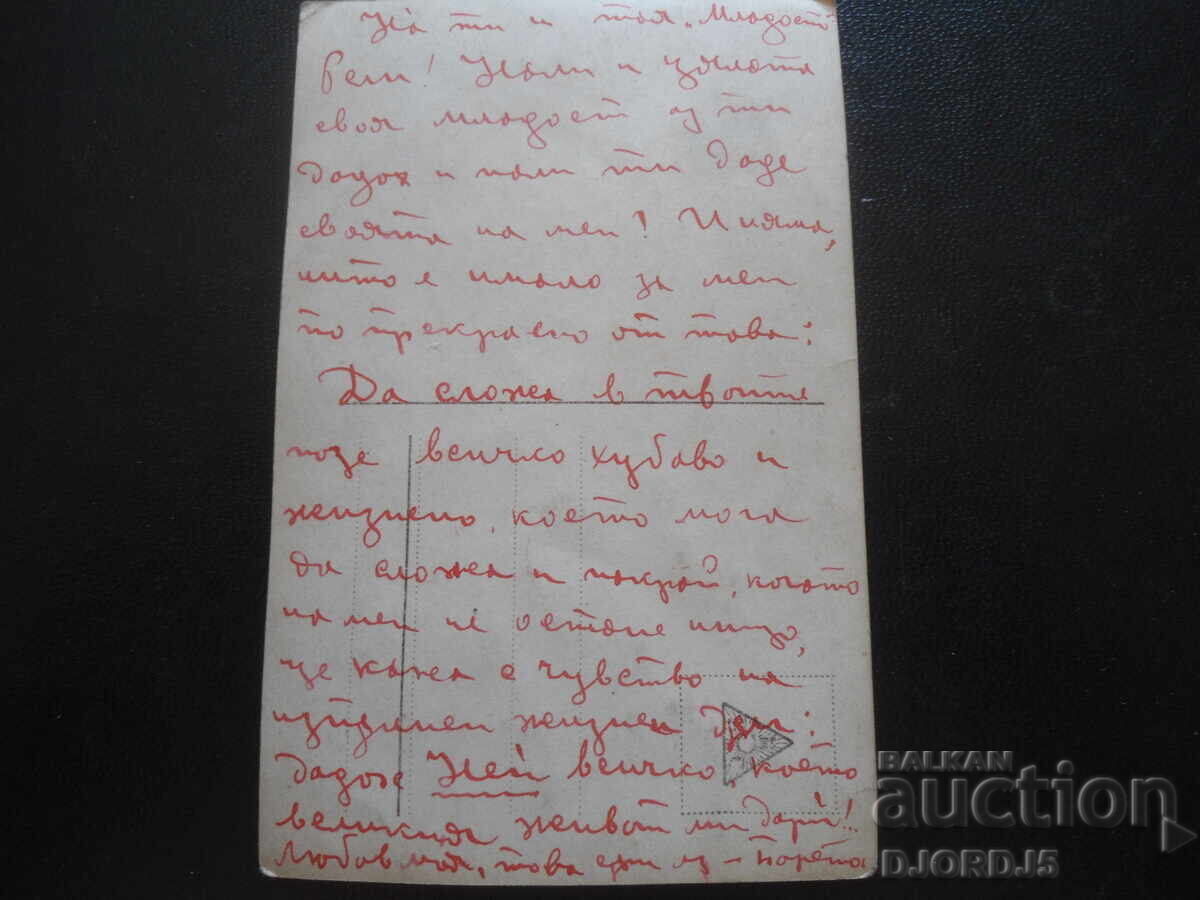 На ти и тая „Младост"
Вели! Нали и цялата
своя младост аз ти
дадох и нали ти даде
своята на мен! И няма,
нито е имало за мен
по прекрасно от това:
Да сложа в твоите
нозе всичко хубаво и
жизнено, което мога
да сложа и накрай, когато
на мен не остане нищо,
ще кажа с чувство на
жизнен ден:
дадох Ней всичко, което
великия живот ми дари!..
Любов моя, това съм аз –
BALKAN
auction
DJORDJ5